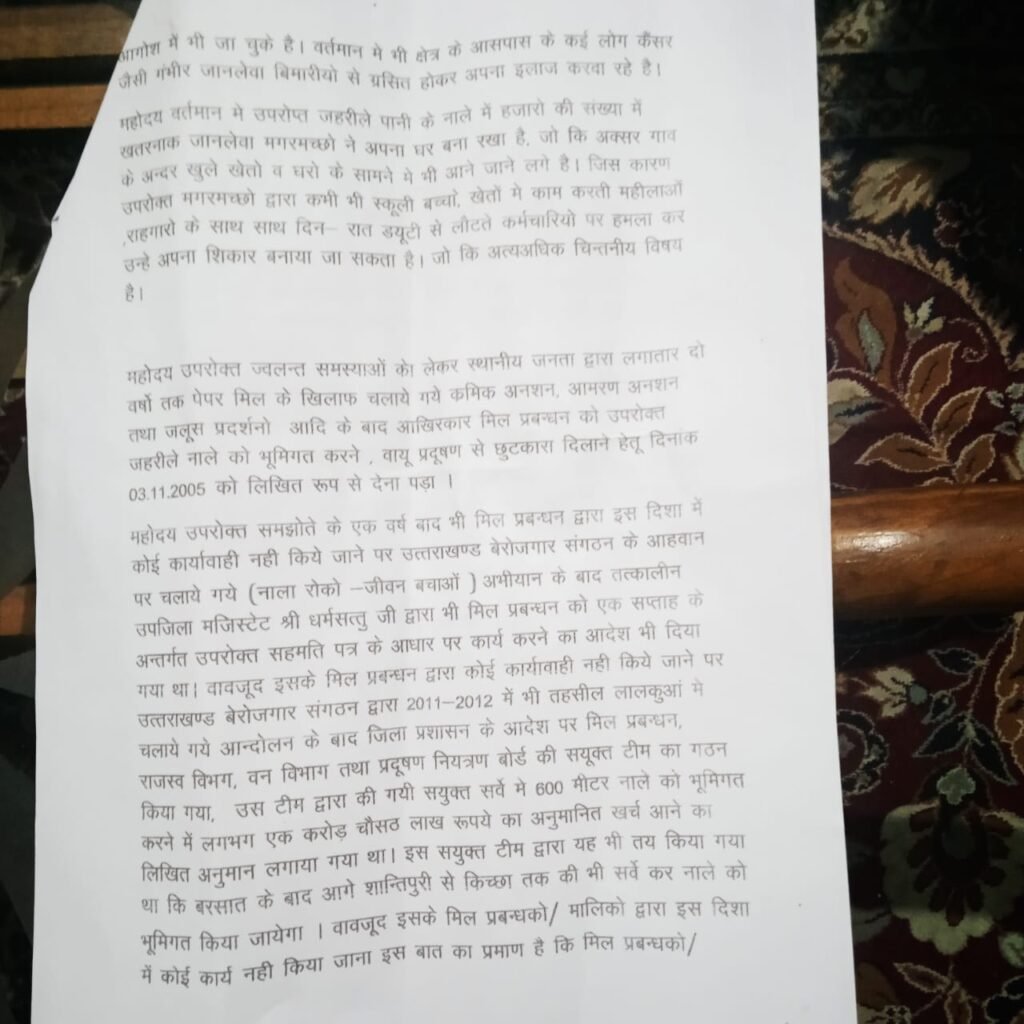 आगोश में भी जा चुके है। वर्तमान मे भी क्षेत्र के आसपास के कई लोग कैंसर
जैसी गंभीर जानलेवा बिमारीयो से ग्रसित होकर अपना इलाज करवा रहे है।
महोदय वर्तमान मे उपरोप्त जहरीले पानी के नाले में हजारो की संख्या में
खतरनाक जानलेवा मगरमच्छो ने अपना घर बना रखा है, जो कि अक्सर गाव
के अन्दर खुले खेतो व घरो के सामने मे भी आने जाने लगे है। जिस कारण
उपरोक्त मगरमच्छो द्वारा कभी भी स्कूली बच्चो, खेतों मे काम करती महीलाओं
,राहगारो के साथ साथ दिन– रात डयूटी से लौटते कर्मचारियो पर हमला कर
उन्हे अपना शिकार बनाया जा सकता है। जो कि अत्यअधिक चिन्तनीय विषय
है।
महोदय उपरोक्त ज्वलन्त समस्याओं को लेकर स्थानीय जनता द्वारा लगातार दो
वर्षो तक पेपर मिल के खिलाफ चलाये गये कमिक अनशन, आमरण अनशन
तथा जलूस प्रदर्शनो आदि के बाद आखिरकार मिल प्रबन्धन को उपरोक्त
जहरीले नाले को भूमिगत करने , वायू प्रदूषण से छुटकारा दिलाने हेतू दिनांक
03.11.2005 को लिखित रूप से देना पड़ा ।
महोदय उपरोक्त समझोते के एक वर्ष बाद भी मिल प्रबन्धन द्वारा इस दिशा में
कोई कार्यावाही नही किये जाने पर उत्तराखण्ड बेरोजगार संगठन के आहवान
पर चलाये गये (नाला रोको –जीवन बचाओं ) अभीयान के बाद तत्कालीन
उपजिला मजिस्टेट श्री धर्मसत्तु जी द्वारा भी मिल प्रबन्धन को एक सप्ताह के
अन्तर्गत उपरोक्त सहमति पत्र के आधार पर कार्य करने का आदेश भी दिया
गया था। वावजूद इसके मिल प्रबन्धन द्वारा कोई कार्यावाही नही किये जाने पर
उत्तराखण्ड बेरोजगार संगठन द्वारा 2011–2012 में भी तहसील लालकुआं मे
चलाये गये आन्दोलन के बाद जिला प्रशासन के आदेश पर मिल प्रबन्धन,
राजस्व विभग, वन विभाग तथा प्रदूषण नियत्रण बोर्ड की सयूक्त टीम का गठन
किया गया, उस टीम द्वारा की गयी सयुक्त सर्वे मे 600 मीटर नाले को भूमिगत
करने में लगभग एक करोड़ चौसठ लाख रूपये का अनुमानित खर्च आने का
लिखित अनुमान लगाया गया था। इस सयुक्त टीम द्वारा यह भी तय किया गया
था कि बरसात के बाद आगे शान्तिपुरी से किच्छा तक की भी सर्वे कर नाले को
भूमिगत किया जायेगा । वावजूद इसके मिल प्रबन्धको/ मालिको द्वारा इस दिशा
में कोई कार्य नही किया जाना इस बात का प्रमाण है कि मिल प्रबन्धको/